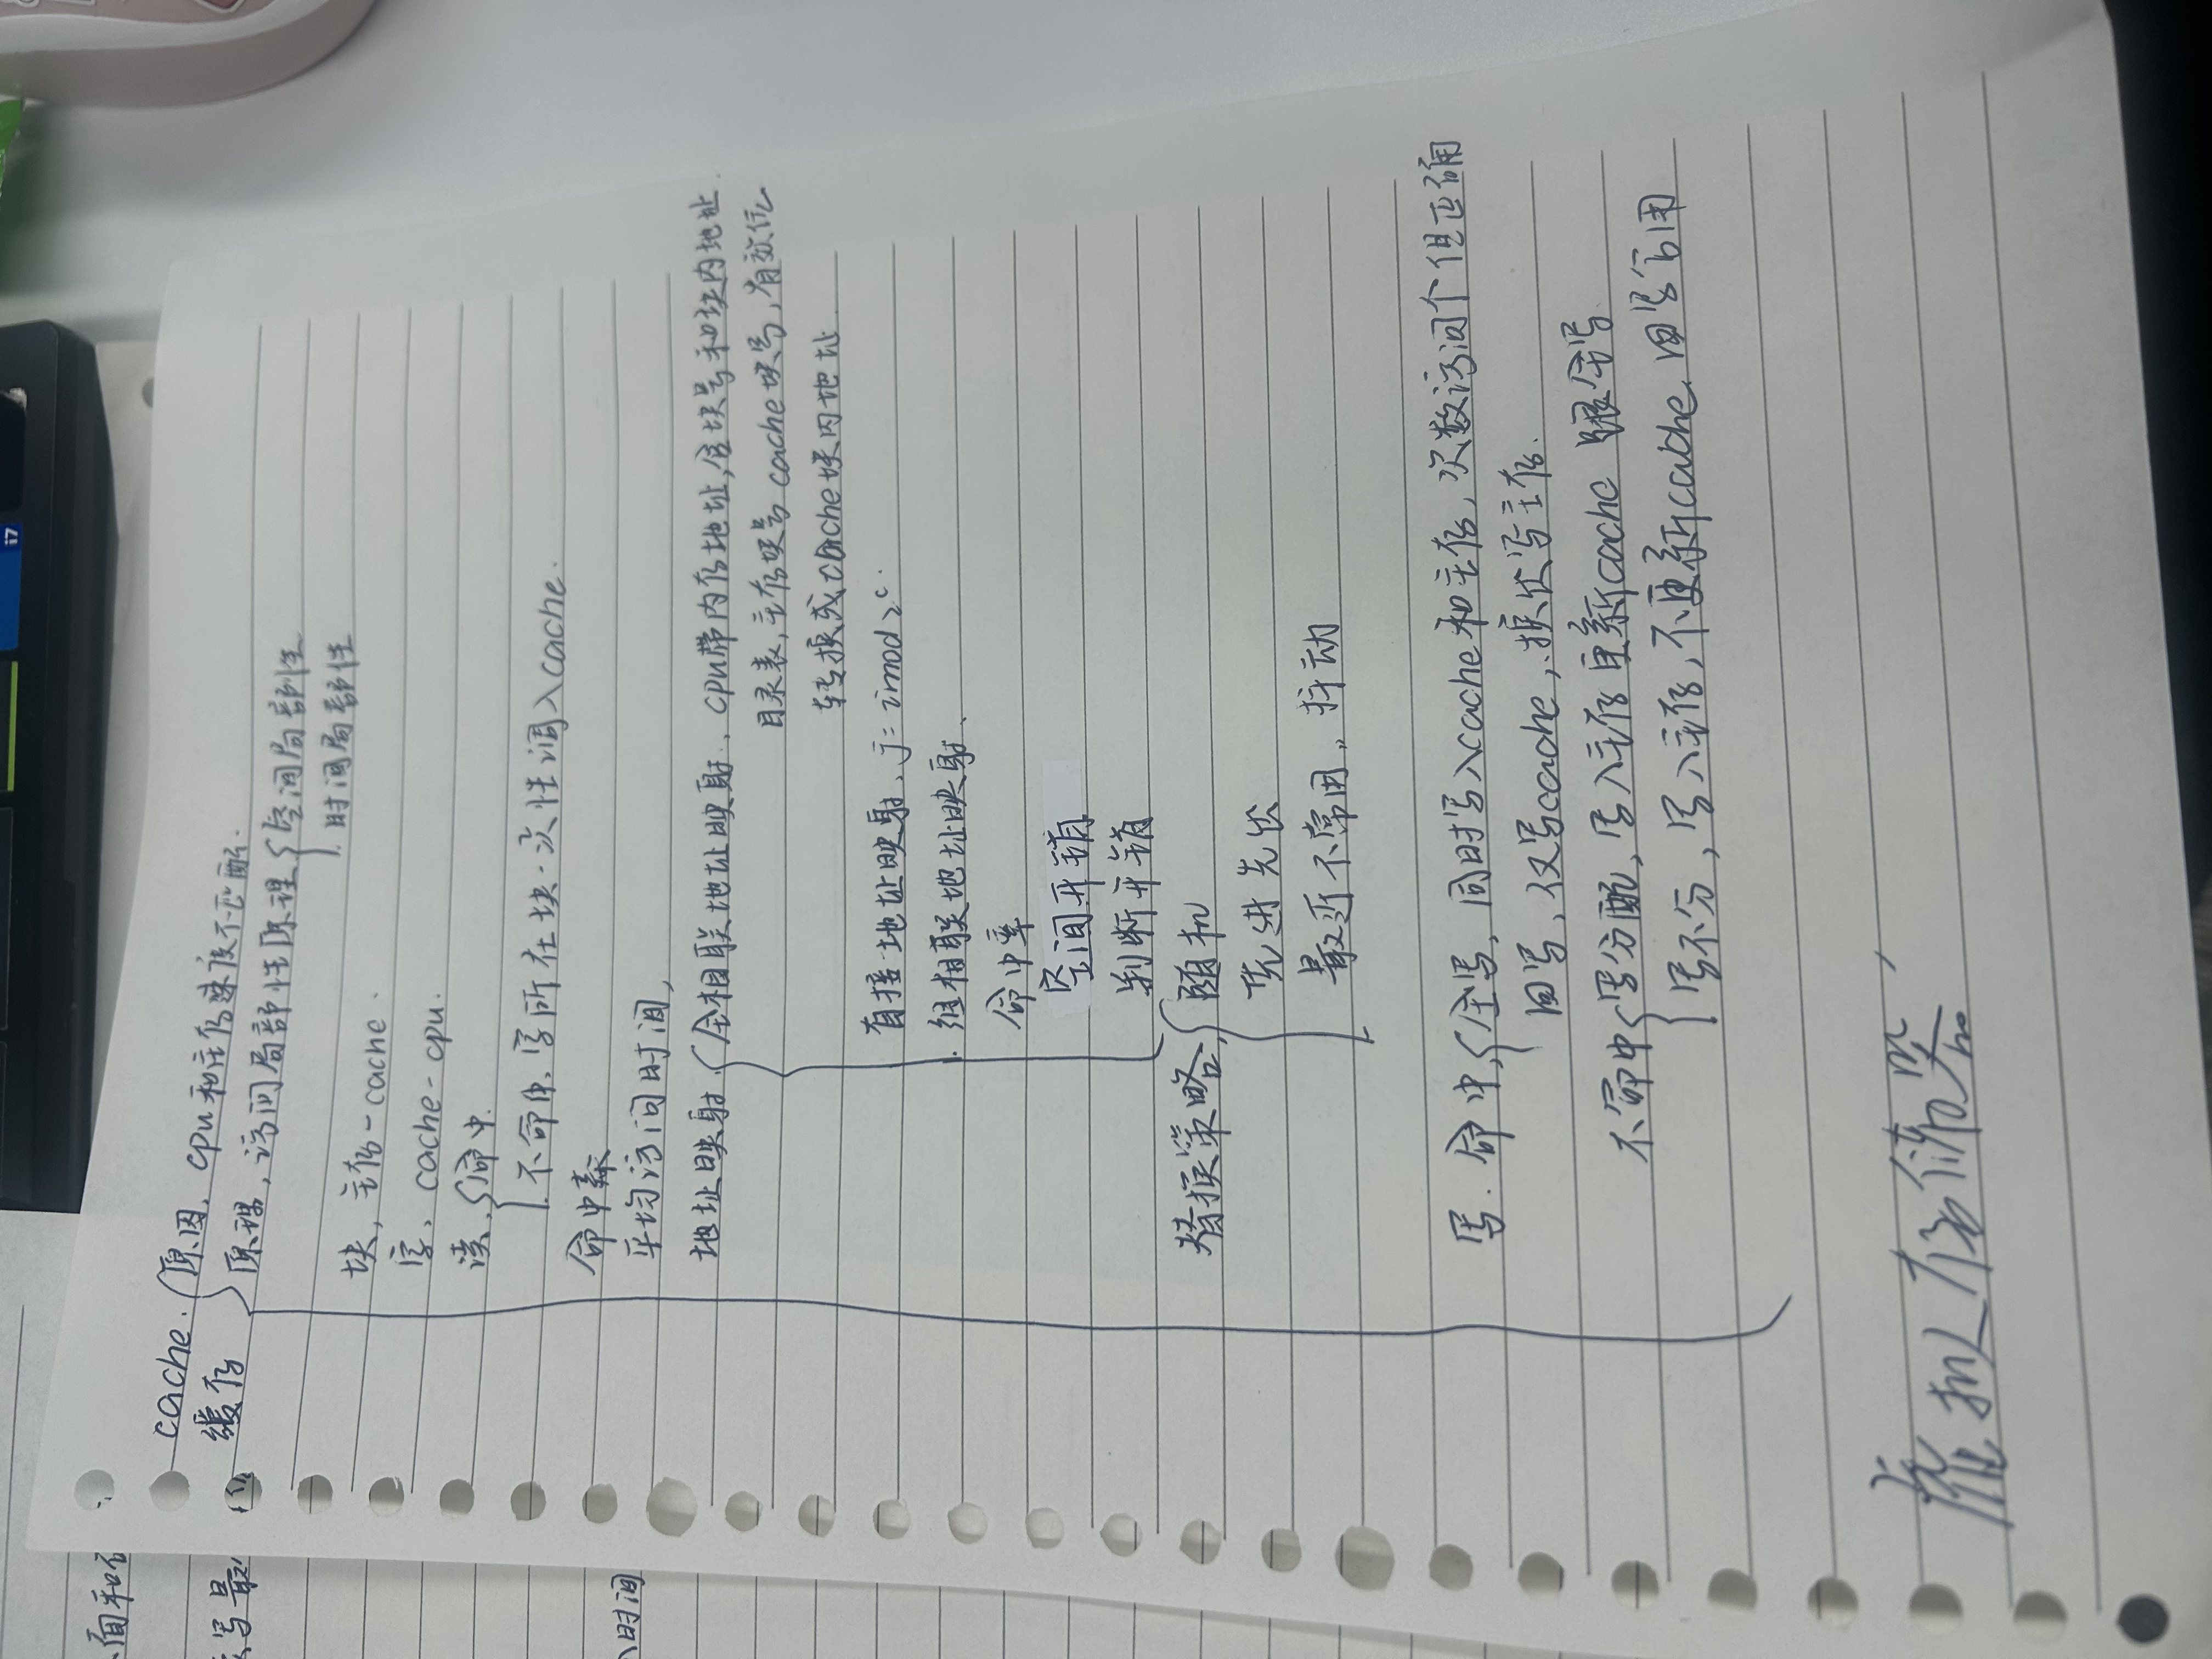 i7
面和
写最
时间
cache. 原因, cpu和主存速度不匹配.
缓存 原理, 访问局部性原理 空间局部性
时间局部性
块, 主存-cache.
字, cache-cpu.
读, 命中.
不命中, 字所在块一次性调入cache.
命中率
平均访问时间,
地址映射, 全相联地址映射, cpu带内存地址,含块号和块内地址.
目录表,主存块号 cache块号,有效位
转换成cache块内地址.
直接地址映射, j=imod2^c.
组相联地址映射.
命中率
空间开销
判断开销
替换策略, 随机
先进先出
最近不常用, 抖动
写. 命中, 全写, 同时写入cache和主存, 次数访问个但正确
回写, 仅写cache, 换出写主存.
不命中 写分配, 写入主存更新cache 跟全写
写不分, 写入主存, 不更新cache, 回写合用
虚拟存储器